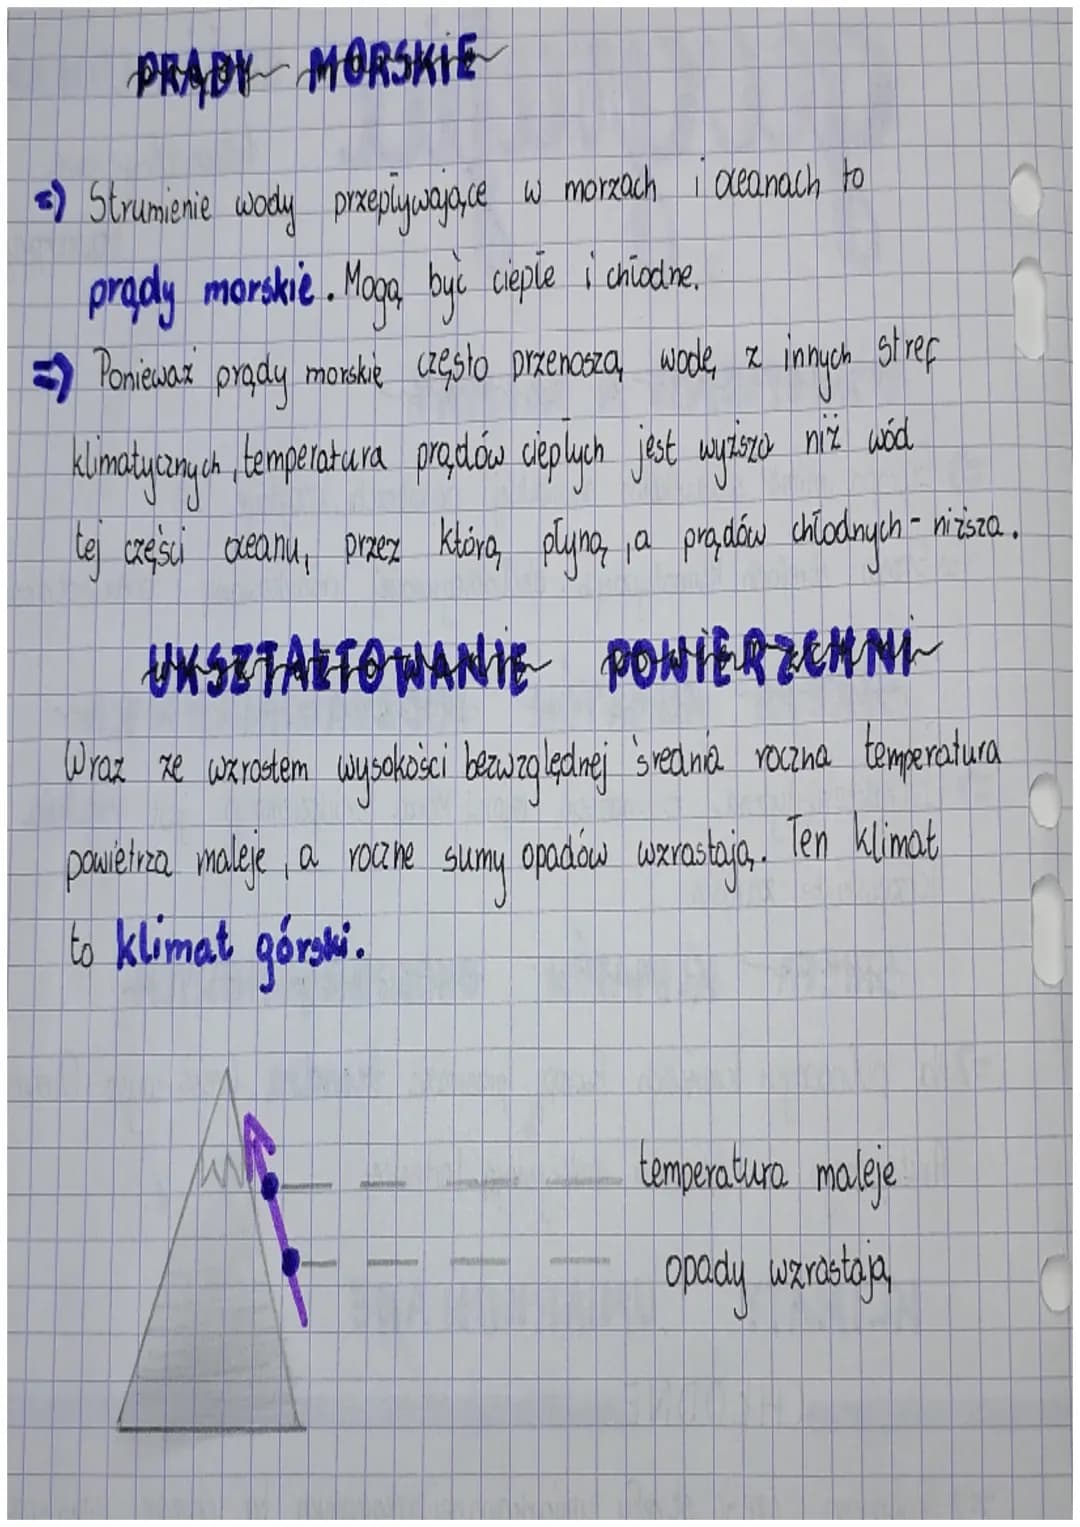 PRĄDY MORSKIE
=) Strumienie wody przepływające w morzach i oceanach to
prądy morskie. Mogą być ciepłe i chłodne.
=) Ponieważ prądy morskie często przenoszą wodę z innych stref
klimatycznych, temperatura prądów ciepłych jest wyższa niż wód
tej części oceanu, przez którą płyną, a prądów chłodnych - niższa.
UKSZTAŁTOWANIE POWIERZCHNI
Wraz ze wzrostem wysokości bezwzględnej średnia roczna temperatura
powietrza maleje, a roczne sumy opadów wzrastają. Ten klimat
to klimat górski.
temperatura maleje
opady wzrastają